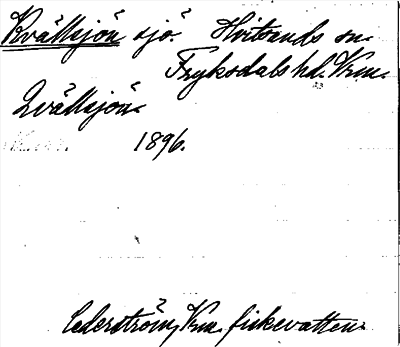 Kvällsjön sjö. Hvitsands sn.
Fryksdals hd. Vrm.
Qvällsjön.
1896.
Cederström, Vrm. fiskevatten.